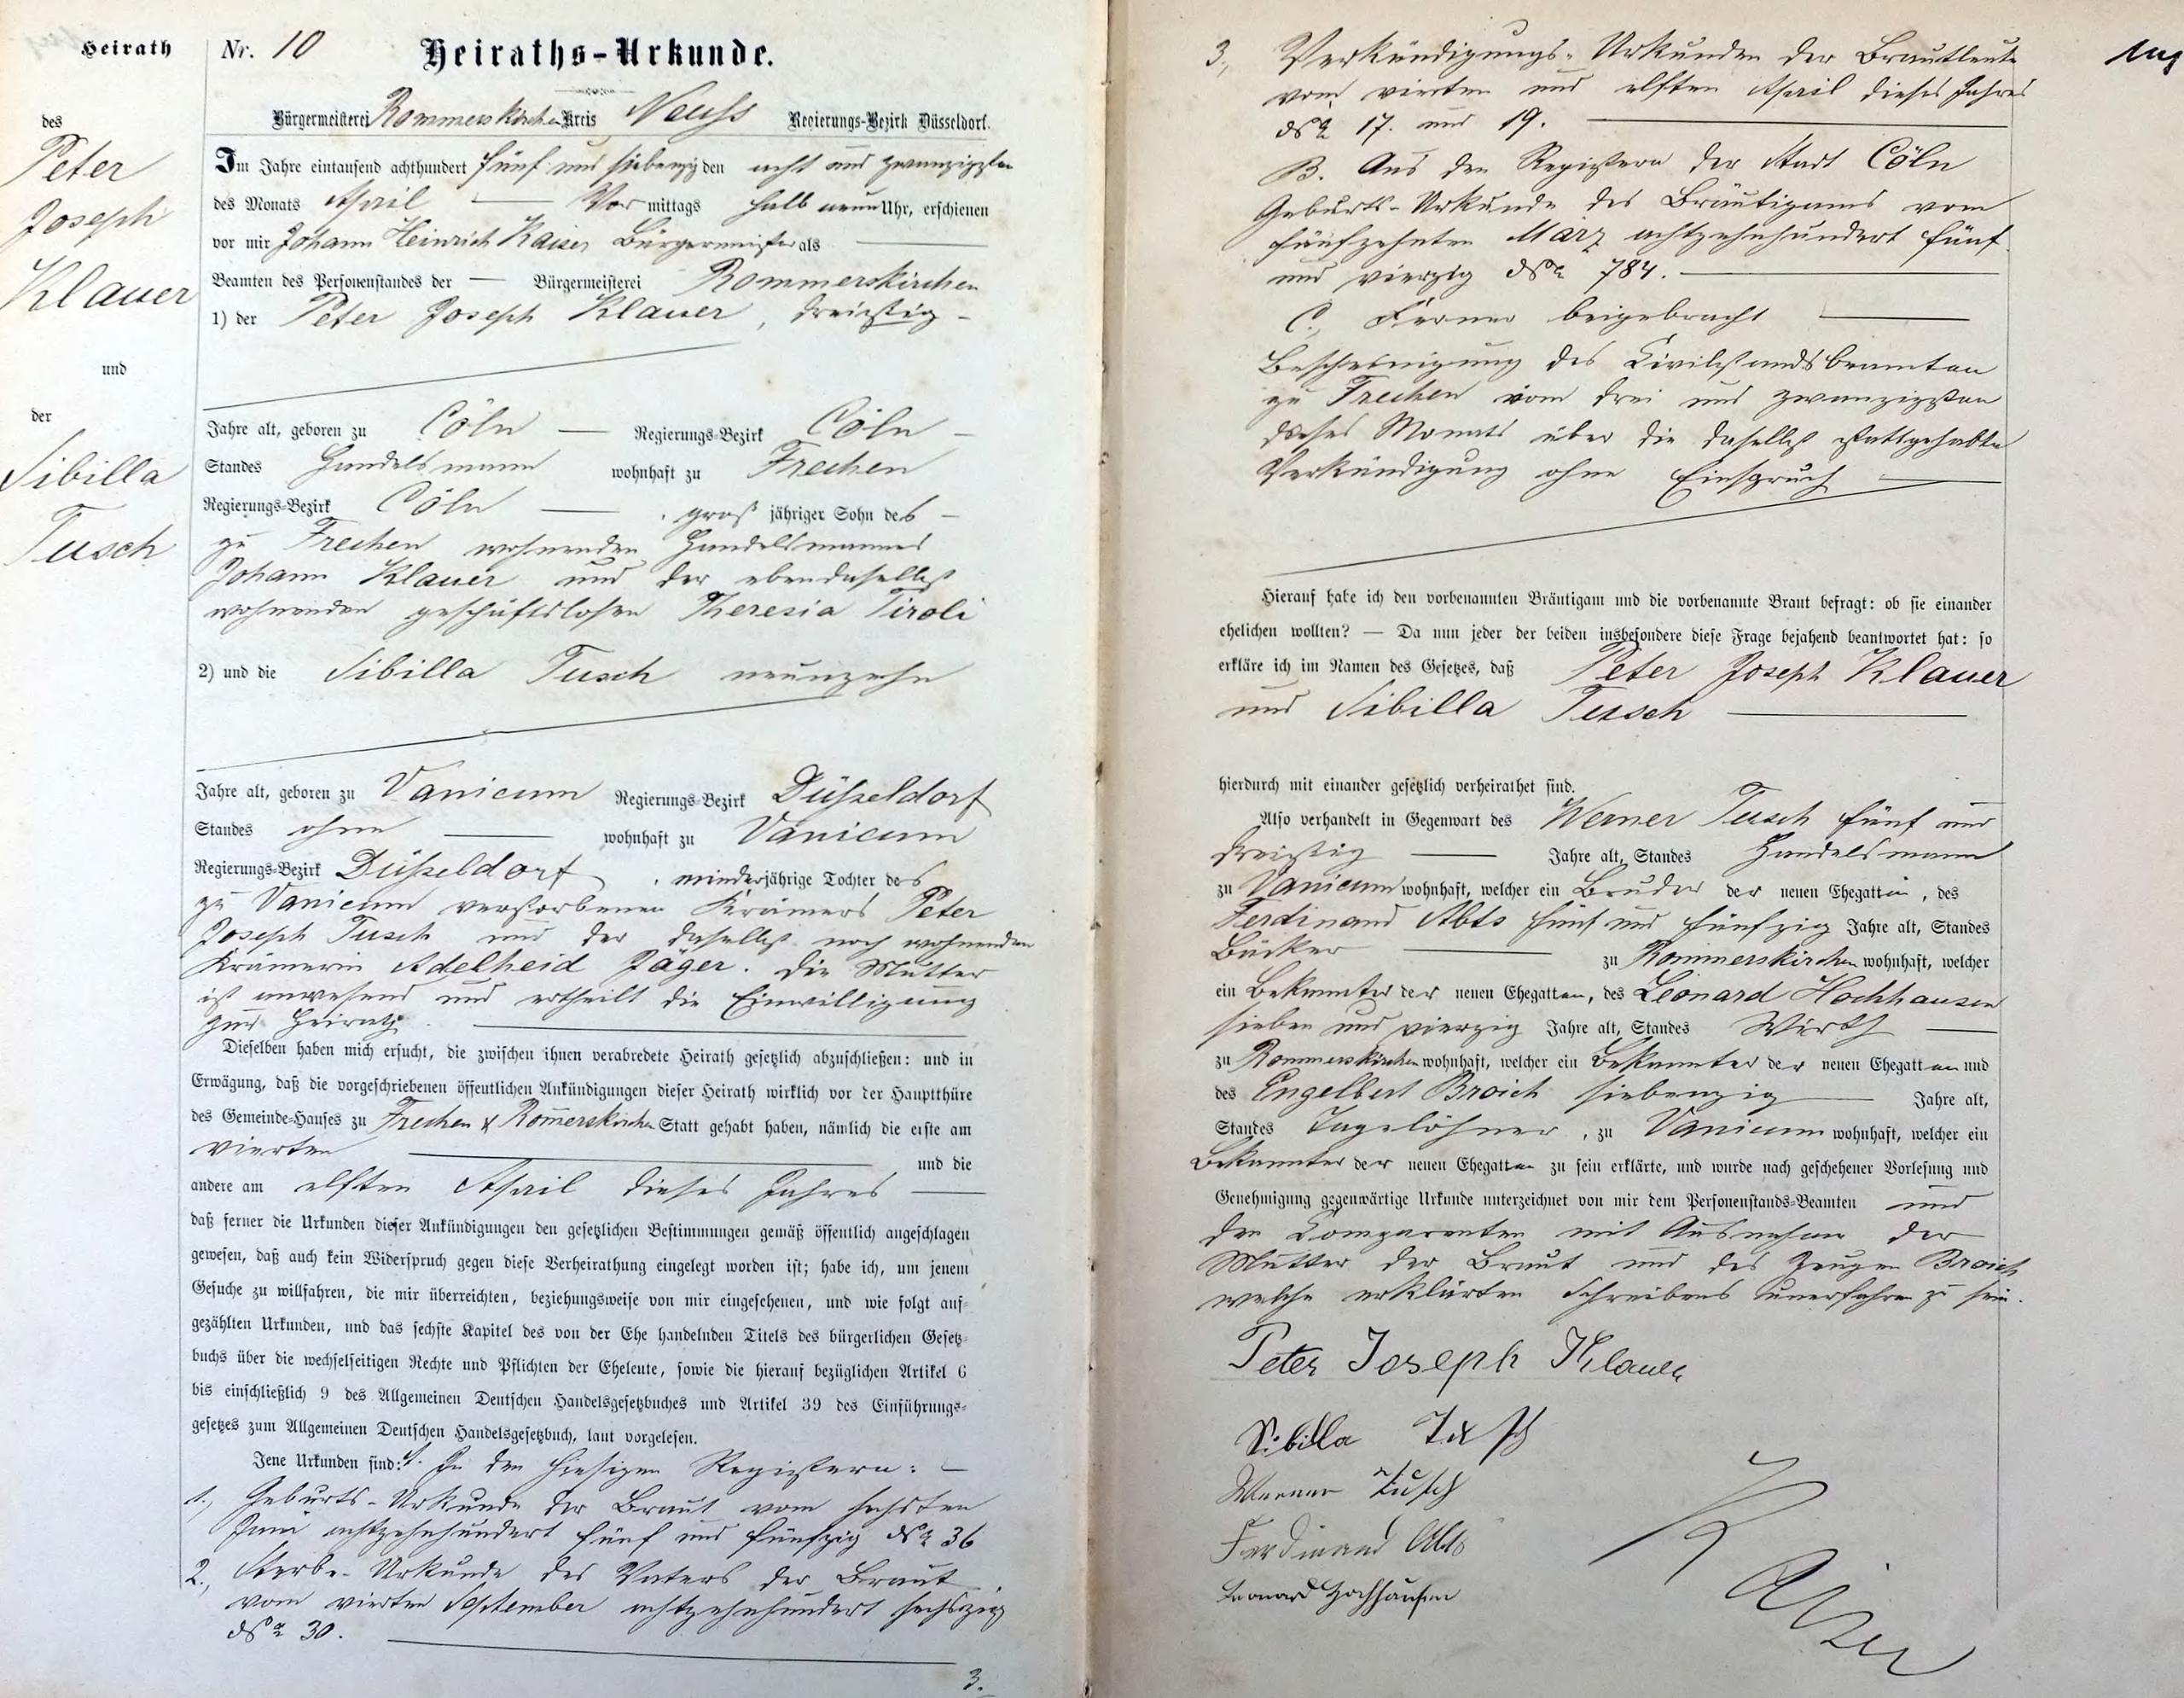 Heirath
des
Peter
Joseph
Klauer
und
der
Sibilla
Tusch
Nr. 10 Heiraths-Urkunde.
Bürgermeisterei Rommerskirchen Kreis Neuss Regierungs-Bezirk Düsseldorf.
Im Jahre eintausend achthundert fünf und siebenzig den acht und zwanzigsten
des Monats April — Vor mittags halb neun Uhr, erschienen
vor mir Johann Heinrich Kaiser Bürgermeister als —
Beamten des Personenstandes der — Bürgermeisterei Rommerskirchen
1) der Peter Joseph Klauer, dreißig -
Jahre alt, geboren zu Cöln — Regierungs-Bezirk Cöln -
Standes Handelsmann wohnhaft zu Frechen
Regierungs-Bezirk Cöln —, groß jähriger Sohn des -
zu Frechen wohnenden Handelsmannes
Johann Klauer und der ebendaselbst
wohnenden geschäftslosen Theresia Tiroli
2) und die Sibilla Tusch neunzehn
Jahre alt, geboren zu Vanicum Regierungs-Bezirk Düsseldorf
Standes ohne — wohnhaft zu Vanicum
Regierungs-Bezirk Düsseldorf, minderjährige Tochter des
zu Vanicum verstorbenen Krämers Peter
Joseph Tusch und der daselbst noch wohnenden
Krämerin Adelheid Jäger. Die Mutter
ist anwesend und ertheilt die Einwilligung
zur Heirath. —
Dieselben haben mich ersucht, die zwischen ihnen verabredete Heirath gesetzlich abzuschließen: und in
Erwägung, daß die vorgeschriebenen öffentlichen Ankündigungen dieser Heirath wirklich vor der Hauptthüre
des Gemeinde-Hauses zu Frechen & Rom̅erskirchen Statt gehabt haben, nämlich die erste am
vierten — und die
andere am elften April dieses Jahres —
daß ferner die Urkunden dieser Ankündigungen den gesetzlichen Bestimmungen gemäß öffentlich angeschlagen
gewesen, daß auch kein Widerspruch gegen diese Verheirathung eingelegt worden ist; habe ich, um jenem
Gesuche zu willfahren, die mir überreichten, beziehungsweise von mir eingesehenen, und wie folgt auf-
gezählten Urkunden, und das sechste Kapitel des von der Ehe handelnden Titels des bürgerlichen Gesetz-
buchs über die wechselseitigen Rechte und Pflichten der Eheleute, sowie die hierauf bezüglichen Artikel 6
bis einschließlich 9 des Allgemeinen Deutschen Handelsgesetzbuches und Artikel 39 des Einführungs-
gesetzes zum Allgemeinen Deutschen Handelsgesetzbuch, laut vorgelesen.
Jene Urkunden sind: A. In den hiesigen Registern: —
1., Geburts-Urkunde der Braut vom sechsten
Juni achtzehnhundert fünf und fünfzig No 36
2., Sterbe-Urkunde des Vaters der Braut
vom vierten September achtzehnhundert sechszig
No 30. —
3.
3., Verkündigungs-Urkunden der Brautleute
vom vierten und elften April dieses Jahres
No 17. und 19. —
B. Aus den Registern der Stadt Cöln
Geburts-Urkunde des Bräutigams vom
fünfzehnten März achtzehnhundert fünf
und vierzig No 784. —
C., Ferner beigebracht —
Bescheinigung des Civilstandsbeamten
zu Frechen vom drei und zwanzigsten
dieses Monats über die daselbst stattgehabte
Verkündigung ohne Einspruch —
Hierauf habe ich den vorbenannten Bräutigam und die vorbenannte Braut befragt: ob sie einander
ehelichen wollten? — Da nun jeder der beiden insbesondere diese Frage bejahend beantwortet hat: so
erkläre ich im Namen des Gesetzes, daß Peter Joseph Klauer
und Sibilla Tusch —
hierdurch mit einander gesetzlich verheirathet sind.
Also verhandelt in Gegenwart des Werner Tusch fünf und
dreißig — Jahre alt, Standes Handelsmann
zu Vanicum wohnhaft, welcher ein Bruder der neuen Ehegattin, des
Ferdinand Abts fünf und fünfzig Jahre alt, Standes
Bäcker — zu Rommerskirchen wohnhaft, welcher
ein Bekannter der neuen Ehegatten, des Leonard Hochhausen
sieben und vierzig Jahre alt, Standes Wirth —
zu Rommerskirchen wohnhaft, welcher ein Bekannter der neuen Ehegatten und
des Engelbert Broich siebenzig — Jahre alt,
Standes Tagelöhner, zu Vanicum wohnhaft, welcher ein
Bekannter der neuen Ehegatten zu sein erklärte, und wurde nach geschehener Vorlesung und
Genehmigung gegenwärtige Urkunde unterzeichnet von mir dem Personenstands-Beamten und
den Comparenten mit Ausnahme der
Mutter der Braut und des Zeugen Broich
welche erklärten Schreibens unerfahren zu sein.
Peter Joseph Klauer
Sibilla Tusch
Werner Tusch
Ferdinand Abts
Leonard Hochhausen
Kaiser